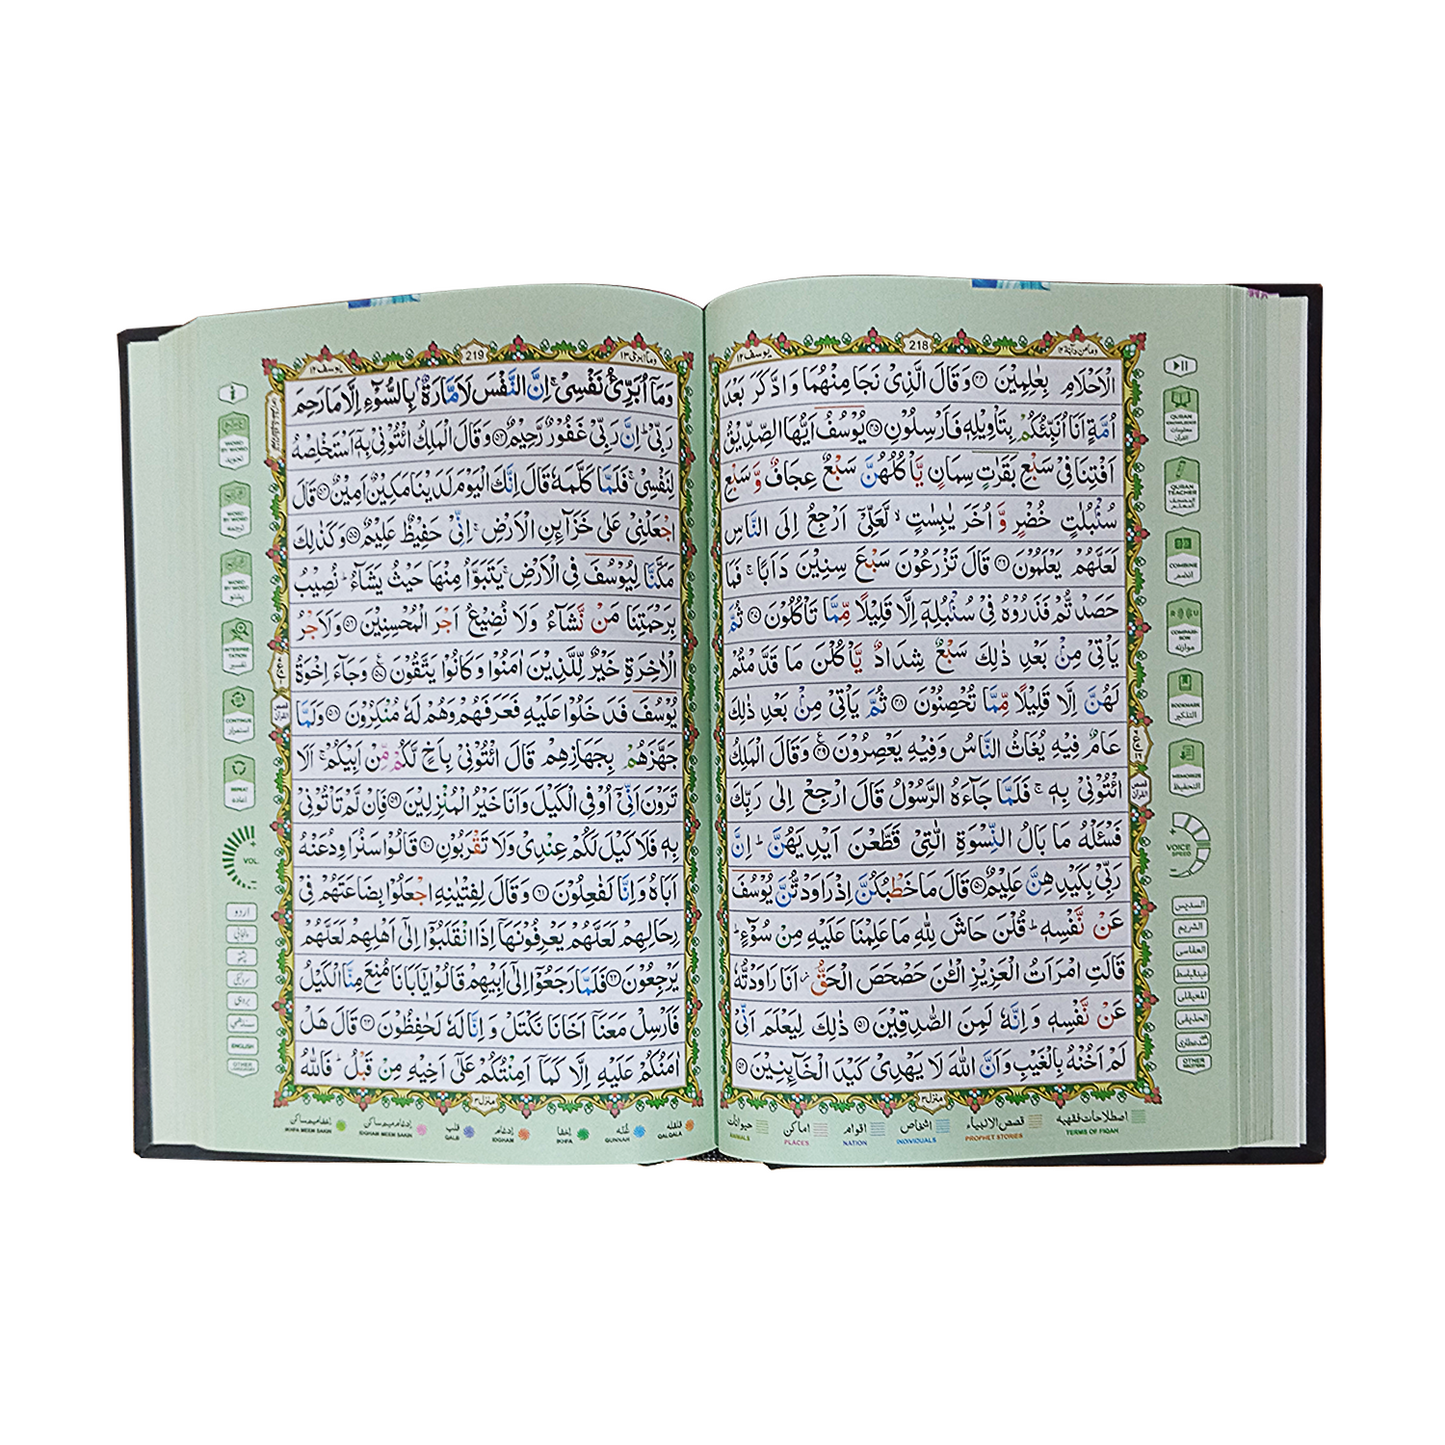 وما من دآبة ۱۲
218
یوسف ۱۲
الْاَحْلَامِ بِعٰلِمِیْنَ ۝۴۴ وَ قَالَ الَّذِیْ نَجَا مِنْهُمَا وَ ادَّكَرَ بَعْدَ
اُمَّةٍ اَنَا اُنَبِّئُكُمْ بِتَاْوِیْلِهٖ فَاَرْسِلُوْنِ ۝۴۵ یُوْسُفُ اَیُّهَا الصِّدِّیْقُ
اَفْتِنَا فِیْ سَبْعِ بَقَرٰتٍ سِمَانٍ یَّاْكُلُهُنَّ سَبْعٌ عِجَافٌ وَّ سَبْعِ
سُنْۢبُلٰتٍ خُضْرٍ وَّ اُخَرَ یٰبِسٰتٍ ۙ لَّعَلِّیْۤ اَرْجِعُ اِلَی النَّاسِ
لَعَلَّهُمْ یَعْلَمُوْنَ ۝۴۶ قَالَ تَزْرَعُوْنَ سَبْعَ سِنِیْنَ دَاَبًا ۚ فَمَا
حَصَدْتُّمْ فَذَرُوْهُ فِیْ سُنْۢبُلِهٖۤ اِلَّا قَلِیْلًا مِّمَّا تَاْكُلُوْنَ ۝۴۷ ثُمَّ
یَاْتِیْ مِنْۢ بَعْدِ ذٰلِكَ سَبْعٌ شِدَادٌ یَّاْكُلْنَ مَا قَدَّمْتُمْ
لَهُنَّ اِلَّا قَلِیْلًا مِّمَّا تُحْصِنُوْنَ ۝۴۸ ثُمَّ یَاْتِیْ مِنْۢ بَعْدِ ذٰلِكَ
عَامٌ فِیْهِ یُغَاثُ النَّاسُ وَفِیْهِ یَعْصِرُوْنَ ۝۴۹ وَقَالَ الْمَلِكُ
ائْتُوْنِیْ بِهٖ ۚ فَلَمَّا جَآءَهُ الرَّسُوْلُ قَالَ ارْجِعْ اِلٰی رَبِّكَ
فَسْئَلْهُ مَا بَالُ النِّسْوَةِ الّٰتِیْ قَطَّعْنَ اَیْدِیَهُنَّ ؕ اِنَّ
رَبِّیْ بِكَیْدِهِنَّ عَلِیْمٌ ۝۵۰ قَالَ مَا خَطْبُكُنَّ اِذْ رَاوَدْتُّنَّ یُوْسُفَ
عَنْ نَّفْسِهٖ ؕ قُلْنَ حَاشَ لِلّٰهِ مَا عَلِمْنَا عَلَیْهِ مِنْ سُوْٓءٍ ؕ
قَالَتِ امْرَاَتُ الْعَزِیْزِ الْـٰٔنَ حَصْحَصَ الْحَقُّ ؗ اَنَا رَاوَدْتُّهٗ
عَنْ نَّفْسِهٖ وَ اِنَّهٗ لَمِنَ الصّٰدِقِیْنَ ۝۵۱ ذٰلِكَ لِیَعْلَمَ اَنِّیْ
لَمْ اَخُنْهُ بِالْغَیْبِ وَ اَنَّ اللّٰهَ لَا یَهْدِیْ كَیْدَ الْخَآئِنِیْنَ ۝۵۲
منزل ۳
اصطلاحات فقهیه TERMS OF FIQAH
قصص الانبیاء PROPHET STORIES
اشخاص INDIVIDUALS
اقوام NATION
اماکن PLACES
حیوانات ANIMALS
QURAN KNOWLEDGE
معلومات القرآن
QURAN TEACHER
المصحف المعلم
COMBINE
الضم
COMPARISON
موازنه
BOOKMARK
التذکیر
MEMORIZE
التحفیظ
VOICE SPEED
السدیس
الشریم
العفاسی
عبدالباسط
المعیقلی
الحذیفی
OTHER RECITERS
وما ابرئ ۱۳
219
یوسف ۱۲
وَمَاۤ اُبَرِّئُ نَفْسِیْ ۚ اِنَّ النَّفْسَ لَاَمَّارَةٌۢ بِالسُّوْٓءِ اِلَّا مَا رَحِمَ
رَبِّیْ ؕ اِنَّ رَبِّیْ غَفُوْرٌ رَّحِیْمٌ ۝۵۳ وَقَالَ الْمَلِكُ ائْتُوْنِیْ بِهٖۤ اَسْتَخْلِصْهُ
لِنَفْسِیْ ۚ فَلَمَّا كَلَّمَهٗ قَالَ اِنَّكَ الْیَوْمَ لَدَیْنَا مَكِیْنٌ اَمِیْنٌ ۝۵۴ قَالَ
اجْعَلْنِیْ عَلٰی خَزَآئِنِ الْاَرْضِ ۚ اِنِّیْ حَفِیْظٌ عَلِیْمٌ ۝۵۵ وَكَذٰلِكَ
مَكَّنَّا لِیُوْسُفَ فِی الْاَرْضِ ۚ یَتَبَوَّاُ مِنْهَا حَیْثُ یَشَآءُ ؕ نُصِیْبُ
بِرَحْمَتِنَا مَنْ نَّشَآءُ وَلَا نُضِیْعُ اَجْرَ الْمُحْسِنِیْنَ ۝۵۶ وَلَاَجْرُ
الْاٰخِرَةِ خَیْرٌ لِّلَّذِیْنَ اٰمَنُوْا وَكَانُوْا یَتَّقُوْنَ ۝۵۷ وَجَآءَ اِخْوَةُ
یُوْسُفَ فَدَخَلُوْا عَلَیْهِ فَعَرَفَهُمْ وَهُمْ لَهٗ مُنْكِرُوْنَ ۝۵۸ وَلَمَّا
جَهَّزَهُمْ بِجَهَازِهِمْ قَالَ ائْتُوْنِیْ بِاَخٍ لَّكُمْ مِّنْ اَبِیْكُمْ ۚ اَلَا
تَرَوْنَ اَنِّیْۤ اُوْفِی الْكَیْلَ وَاَنَا خَیْرُ الْمُنْزِلِیْنَ ۝۵۹ فَاِنْ لَّمْ تَاْتُوْنِیْ
بِهٖ فَلَا كَیْلَ لَكُمْ عِنْدِیْ وَلَا تَقْرَبُوْنِ ۝۶۰ قَالُوْا سَنُرَاوِدُ عَنْهُ
اَبَاهُ وَاِنَّا لَفٰعِلُوْنَ ۝۶۱ وَقَالَ لِفِتْیٰنِهِ اجْعَلُوْا بِضَاعَتَهُمْ فِیْ
رِحَالِهِمْ لَعَلَّهُمْ یَعْرِفُوْنَهَاۤ اِذَا انْقَلَبُوْۤا اِلٰۤی اَهْلِهِمْ لَعَلَّهُمْ
یَرْجِعُوْنَ ۝۶۲ فَلَمَّا رَجَعُوْۤا اِلٰۤی اَبِیْهِمْ قَالُوْا یٰۤاَبَانَا مُنِعَ مِنَّا الْكَیْلُ
فَاَرْسِلْ مَعَنَاۤ اَخَانَا نَكْتَلْ وَ اِنَّا لَهٗ لَحٰفِظُوْنَ ۝۶۳ قَالَ هَلْ
اٰمَنُكُمْ عَلَیْهِ اِلَّا كَمَاۤ اَمِنْتُكُمْ عَلٰۤی اَخِیْهِ مِنْ قَبْلُ ؕ فَاللّٰهُ
منزل ۳
قلقله QALQALA
غنّه GUNNAH
اخفا IKHFA
ادغام IDGHAM
قلب QALB
ادغام میم ساکن IDGHAM MEEM SAKIN
اخفا میم ساکن IKHFA MEEM SAKIN
WORD BY WORD
تجوید
WORD BY WORD
ترجمه
WORD BY WORD
پشتو
INTERPRETATION
تفسیر
CONTINUE
استمرار
REPEAT
اعاده
VOL.
اردو
پنجابی
پشتو
سرائیکی
بروهی
سندھی
ENGLISH
OTHER